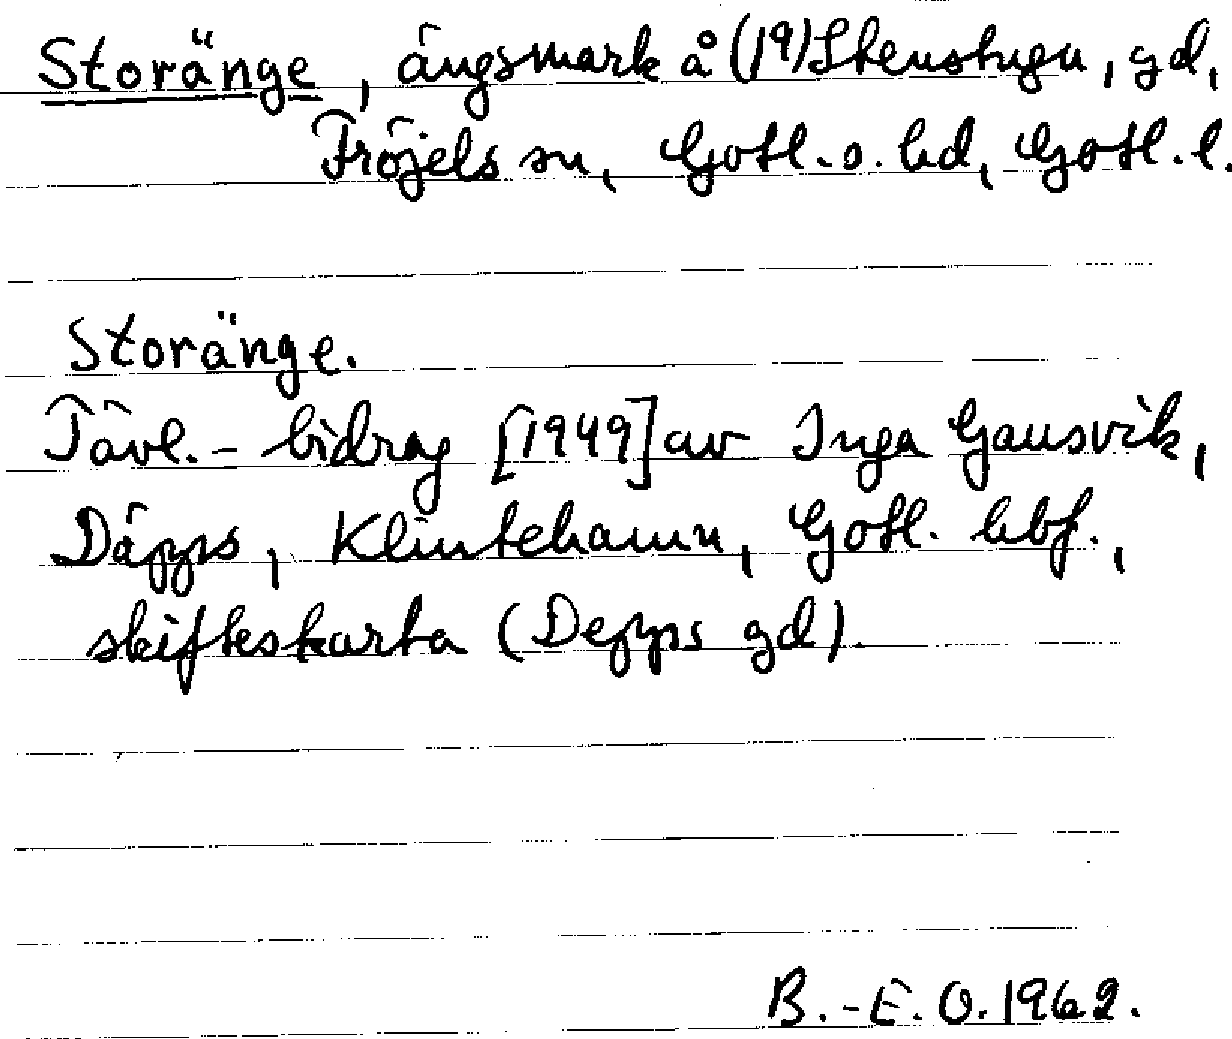 Storänge, ängsmark å (19) Stenstugu, gd,
Fröjels sn, Gotl. s. hd, Gotl. l.
Storänge.
Tävl.-bidrag [1949] av Inga Gansvik,
Däpps, Klintehamn, Gotl. hbf.,
skifteskarta (Depps gd).
B.-E. O. 1962.